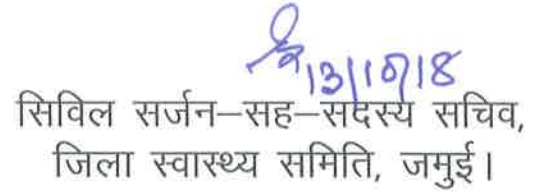 13/10/18
सिविल सर्जन–सह–सदस्य सचिव,
जिला स्वास्थ्य समिति, जमुई।